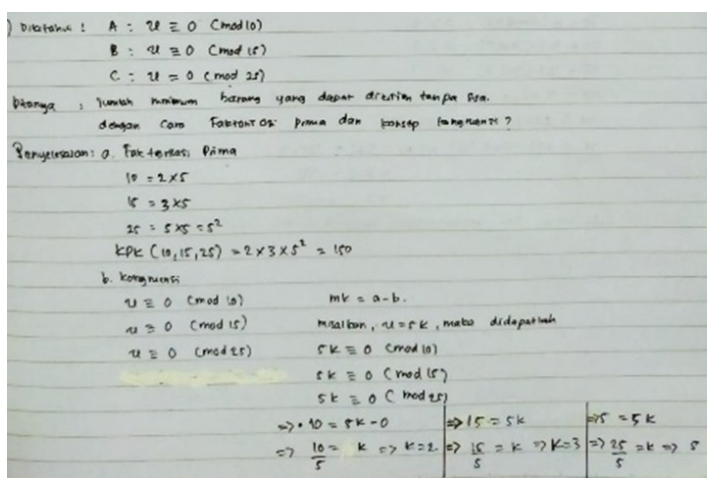 ) Diketahui : A : u ≡ 0 (mod 10)
B : u ≡ 0 (mod 15)
C : u ≡ 0 (mod 25)
Ditanya : Jumlah minimum barang yang dapat dikirim tanpa sisa.
dengan cara Faktorisasi prima dan konsep kongruensi ?
Penyelesaian : a. Faktorisasi Prima
10 = 2 x 5
15 = 3 x 5
25 = 5 x 5 = 5²
KPK (10, 15, 25) = 2 x 3 x 5² = 150
b. Kongruensi
u ≡ 0 (mod 10) mk = a - b.
u ≡ 0 (mod 15) misalkan, u = 5k, maka didapatlah
u ≡ 0 (mod 25) 5k ≡ 0 (mod 10)
5k ≡ 0 (mod 15)
5k ≡ 0 (mod 25)
=> • 10 = 5k - 0 => 15 = 5k =>5 = 5k
=> 10/5 = k => k = 2 => 15/5 = k => k = 3 => 25/5 = k => 5